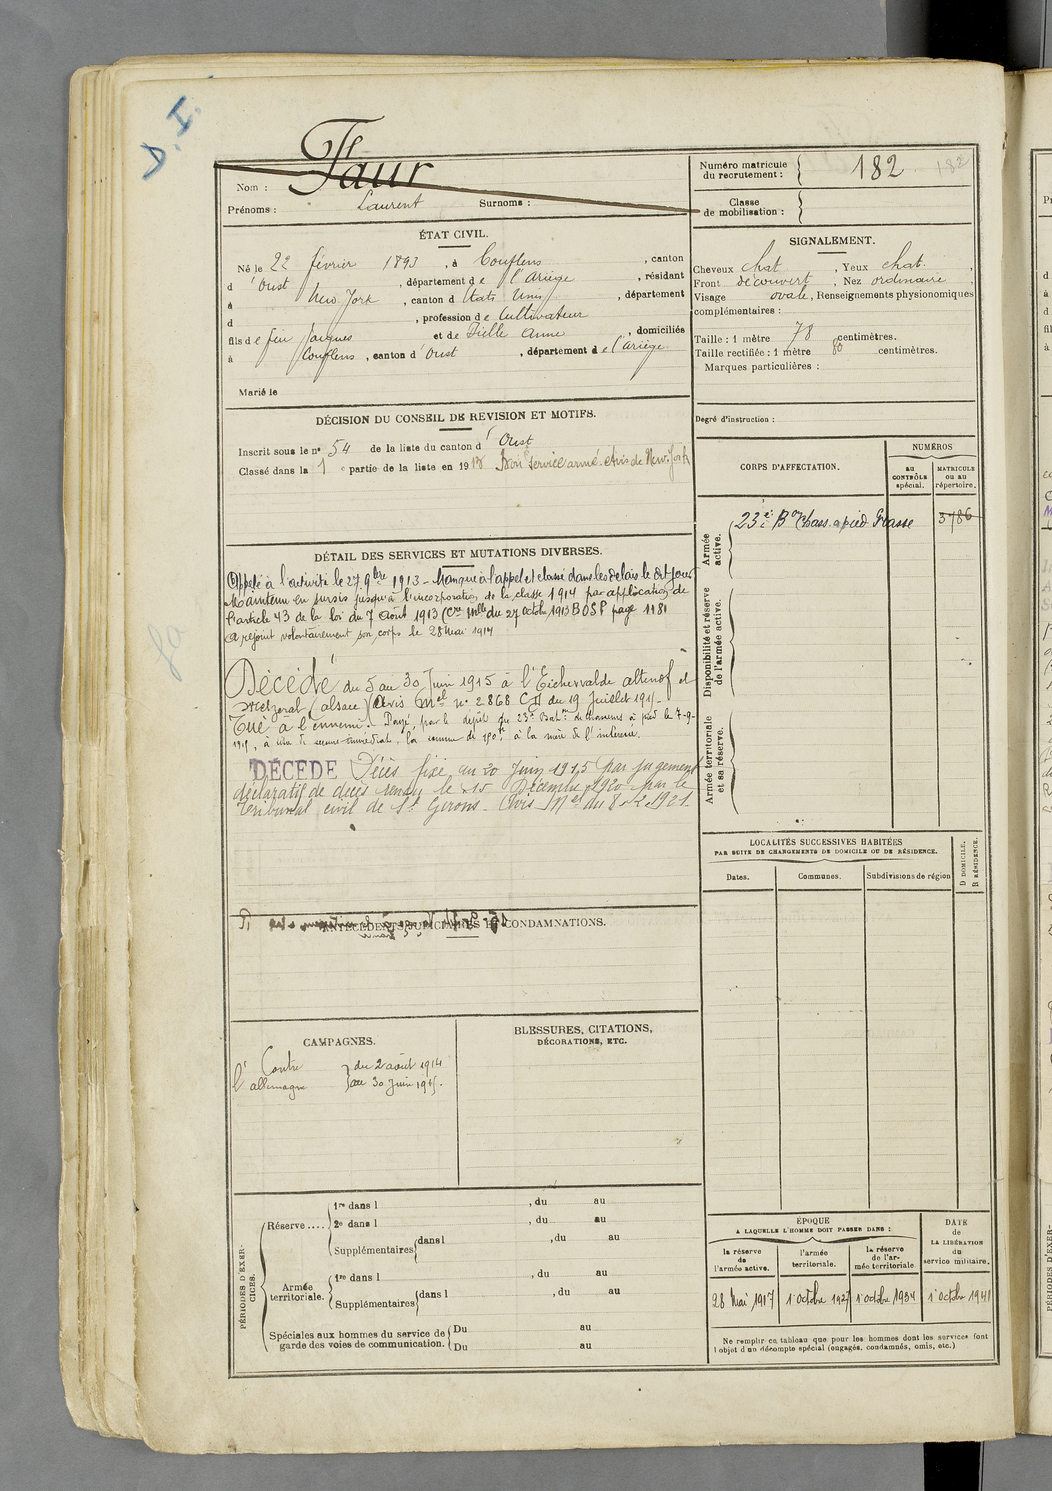 D. I.
Nom : Faur
Prénoms : Laurent Surnoms :
Numéro matricule du recrutement : 182 182
Classe de mobilisation :
ÉTAT CIVIL.
Né le 22 février 1893, à Couflens, canton
d'Oust, département de l'Ariège, résidant
à New. York, canton d Etats Unis, département
d , profession de Cultivateur
fils de feu Jacques et de Zielle Anne, domiciliés
à Couflens, canton d'Oust, département de l'Ariège.
Marié le
SIGNALEMENT.
Cheveux chat. , Yeux chat.
Front découvert, Nez ordinaire,
Visage ovale, Renseignements physionomiques
complémentaires :
Taille : 1 mètre 78 centimètres.
Taille rectifiée : 1 mètre 80 centimètres.
Marques particulières :
Degré d'instruction :
DÉCISION DU CONSEIL DE REVISION ET MOTIFS.
Inscrit sous le no 54 de la liste du canton d'Oust
Classé dans la 1e partie de la liste en 1913 Bon service armé. Avis de New-York
DÉTAIL DES SERVICES ET MUTATIONS DIVERSES.
Appelé à l'activité le 27 9bre 1913 - Manque à l'appel et classé dans les délais le dit jour
Maintenu en sursis jusqu'à l'incorporation de la classe 1914 par application de
l'article 43 de la loi du 7 Août 1913 (Cre Melle du 27 Octobre 1913 BOSP page 1181
A rejoint volontairement son corps le 28 Mai 1914
Décédé du 5 au 30 Juin 1915 à l'Eichervalde altenof et
Metzeral (alsace) (Avis Mel no 2868 CH du 19 Juillet 1915 -
Tué à l'ennemi. - Payé, par le dépôt du 23e Batn de chasseurs à pied le 7-9-
1915, à titre de secours immédiat, la somme de 150 f, à la mère de l'intéressé.
DÉCÉDÉ Décès fixé au 20 Juin 1915 par jugement
déclaratif de décès rendu le 15 Décembre 1920 par le
Tribunal civil de St Girons. Avis Mel du 8.2.1921.
CORPS D'AFFECTATION.
NUMÉROS
au CONTRÔLE spécial.
MATRICULE ou au répertoire.
Armée active.
23e Bon Chass. à pied Grasse 3786
Disponibilité et réserve de l'armée active.
Armée territoriale et sa réserve.
LOCALITÉS SUCCESSIVES HABITÉES
PAR SUITE DE CHANGEMENTS DE DOMICILE OU DE RÉSIDENCE.
Dates. Communes. Subdivisions de région
D DOMICILE. R RÉSIDENCE.
ANTÉCÉDENTS JUDICIAIRES ET CONDAMNATIONS.
CAMPAGNES.
Contre l'allemagne du 2 août 1914
au 30 Juin 1915.
BLESSURES, CITATIONS,
DÉCORATIONS, ETC.
PÉRIODES D'EXERCICES.
Réserve .... 1re dans l , du au
2e dans l , du au
Supplémentaires dans l , du au
Armée territoriale. 1re dans l , du au
Supplémentaires dans l , du au
Spéciales aux hommes du service de garde des voies de communication. Du au
Du au
ÉPOQUE
A LAQUELLE L'HOMME DOIT PASSER DANS :
la réserve de l'armée active.
l'armée territoriale.
la réserve de l'armée territoriale
DATE de LA LIBÉRATION du service militaire.
28 Mai 1917 1 Octobre 1927 1 Octobre 1934 1 Octobre 1941
Ne remplir ce tableau que pour les hommes dont les services font
l'objet d'un décompte spécial (engagés, condamnés, omis, etc.)